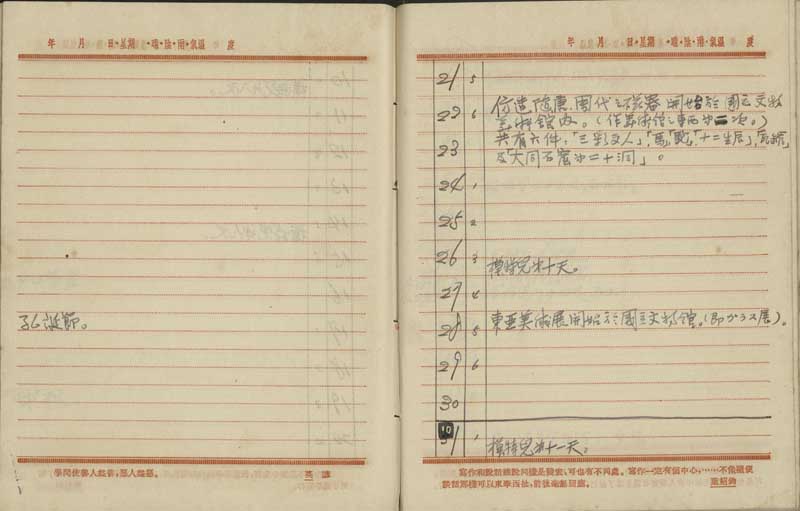 年　月　日・星期　・晴・陰・雨・氣溫　度
孔誕節。
學問使善人益善，惡人益惡。　英　諺
年　月　日・星期　・晴・陰・雨・氣溫　度
21 5
22 6 仿造隋唐、周代之磁器開始於國立文物
美術館內。（作美術館之東西第二次。）
23 共有六件，「三彩文人」，「馬」，「駝」，「十二生辰」，
及「大同石窟第二十洞」。
24 1
25 2
26 3 模特兒第十天。
27 4
28 5 東亞美術展開始於國立文物館。（即ガラス展）。
29 6
30
10
1 1 模特兒第十一天。
寫作和說話雖說同樣是發表，可也有不同處。寫作一定有個中心；……不像隨便
談話那樣可以東拉西扯，前後毫無照應。　葉紹鈞